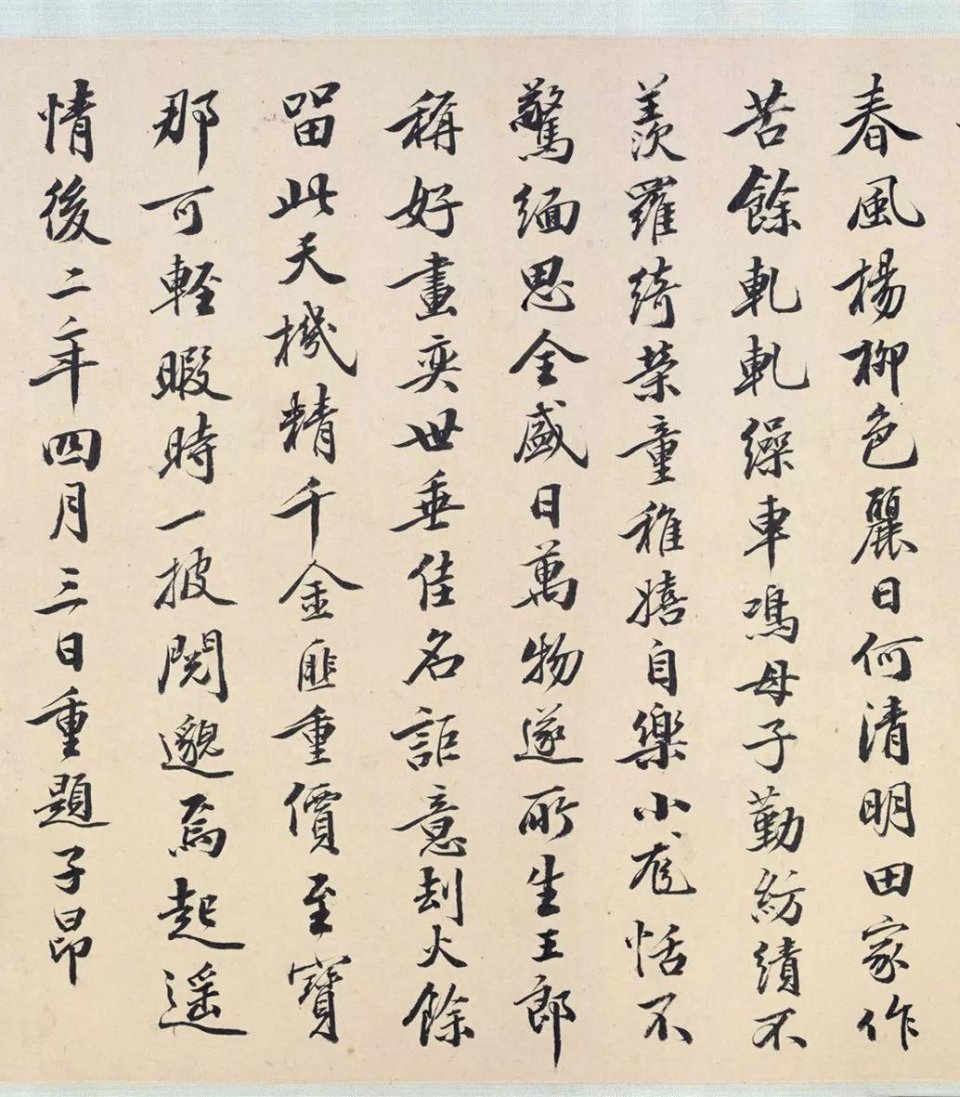 春風楊柳色麗日何清明田家作
苦餘軋軋繰車鳴母子勤紡績不
羨羅綺榮童稚嬉自樂小尨恬不
驚緬思全盛日萬物遂所生王郎
稱好畫奕世垂佳名詎意刧火餘
留此天機精千金匪重價至寶
那可輕暇時一披閱邈焉起遥
情後二年四月三日重題子昂